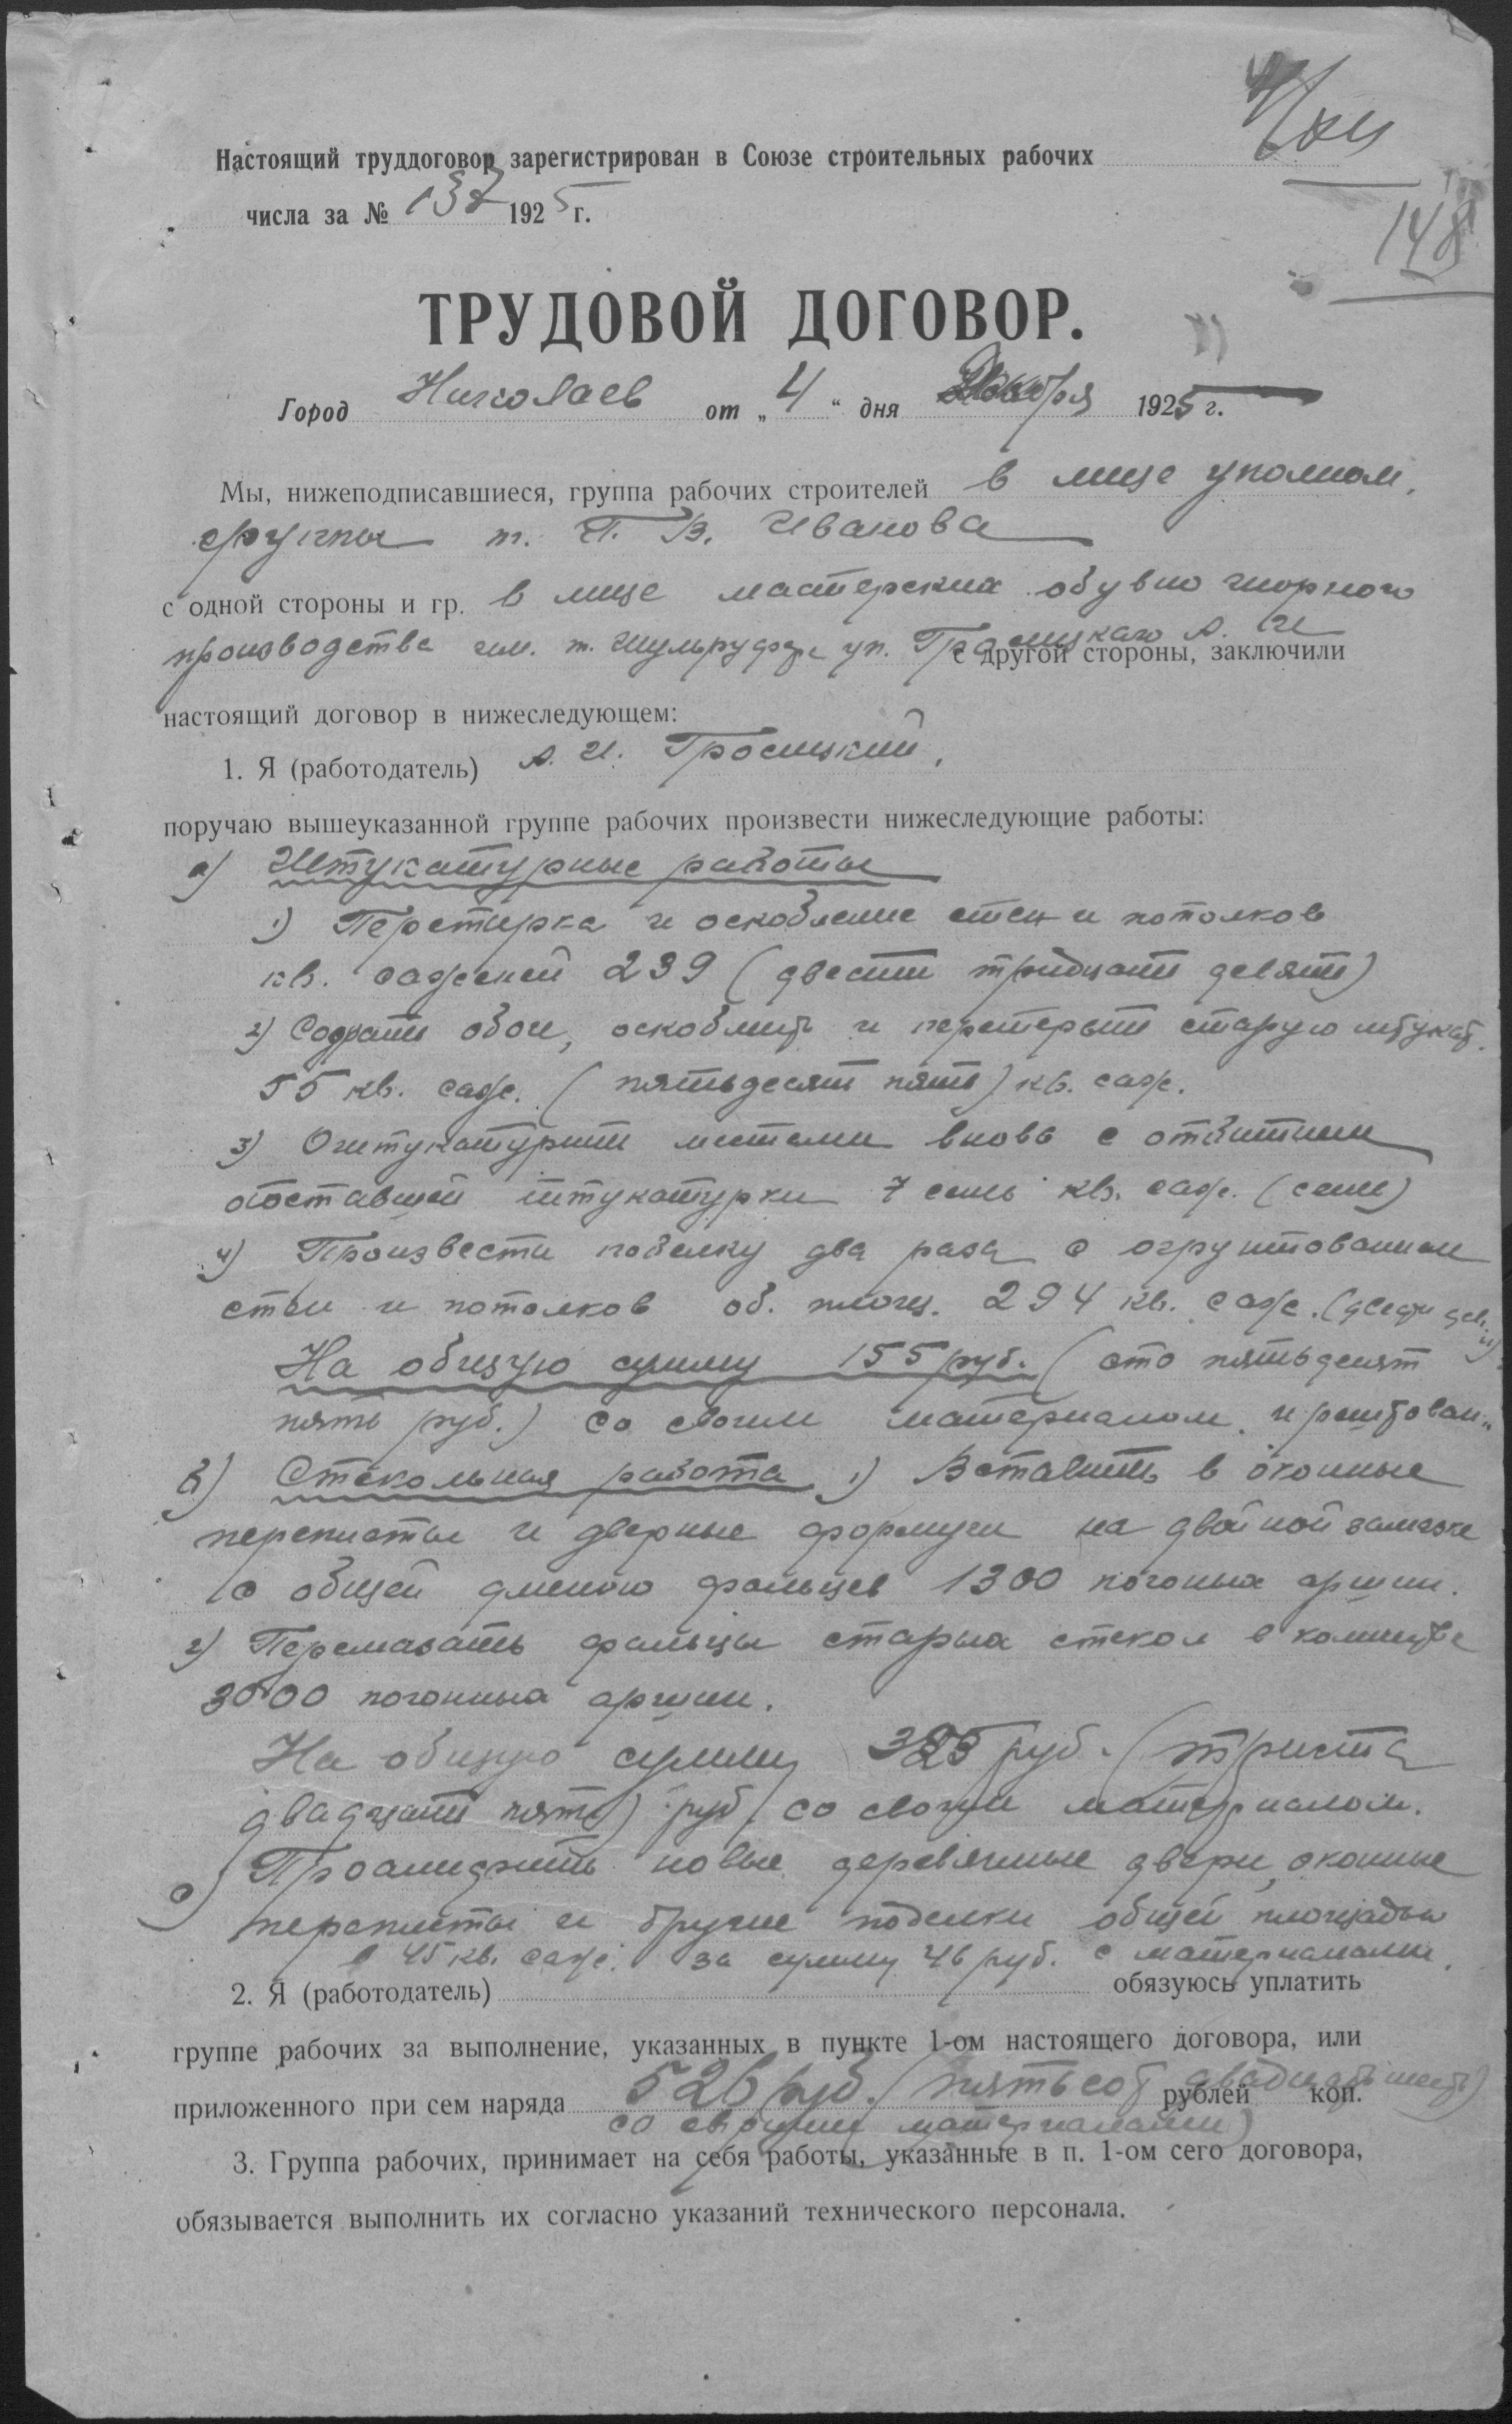 Настоящий труддоговор зарегистрирован в Союзе строительных рабочих
148
числа за № 137 1925 г.
ТРУДОВОЙ ДОГОВОР.
Город Николаев от „ 4 “ дня 1925 г.
Мы, нижеподписавшиеся, группа рабочих строителей в лице уполном.
группы т. Г. В. Иванова
с одной стороны и гр. в лице мастерских обувно
производства им. т. уп. с другой стороны, заключили
настоящий договор в нижеследующем:
1. Я (работодатель) А. И.
поручаю вышеуказанной группе рабочих произвести нижеследующие работы:
а) Штукатурные работы
1) Перетирка и оскобление стен и потолков
кв. саженей 239 (двести тридцать девять)
2) Содрать обои, оскоблить и перетереть старую штукат.
55 кв. саж. (пятьдесят пять) кв. саж.
3) Оштукатурить местами вновь с отбитием
отставшей штукатурки 7 семь кв. саж. (семь)
4) Произвести побелку два раза с огрунтованием
стен и потолков об. площ. 294 кв. саж.
На общую сумму 155 руб. (сто пятьдесят
пять руб.) со своим материалом и
в) Стекольная работа 1) Вставить в оконные
переплеты и дверные на двойной замазке
с общей длиною фальцев 1300 погонных аршин.
2) Перемазать фальцы старых стекол в количестве
3000 погонных аршин.
На общую сумму 325 руб. (триста
двадцать пять) руб. со своим материалом.
с) Проолифить новые деревянные двери, оконные
переплеты и другие поделки общей площадью
в 45 кв. саж. за сумму 46 руб. с материалами.
2. Я (работодатель) обязуюсь уплатить
группе рабочих за выполнение, указанных в пункте 1-ом настоящего договора, или
приложенного при сем наряда 526 руб. (пятьсот двадцать шесть) рублей коп.
со своими материалами)
3. Группа рабочих, принимает на себя работы, указанные в п. 1-ом сего договора,
обязывается выполнить их согласно указаний технического персонала.